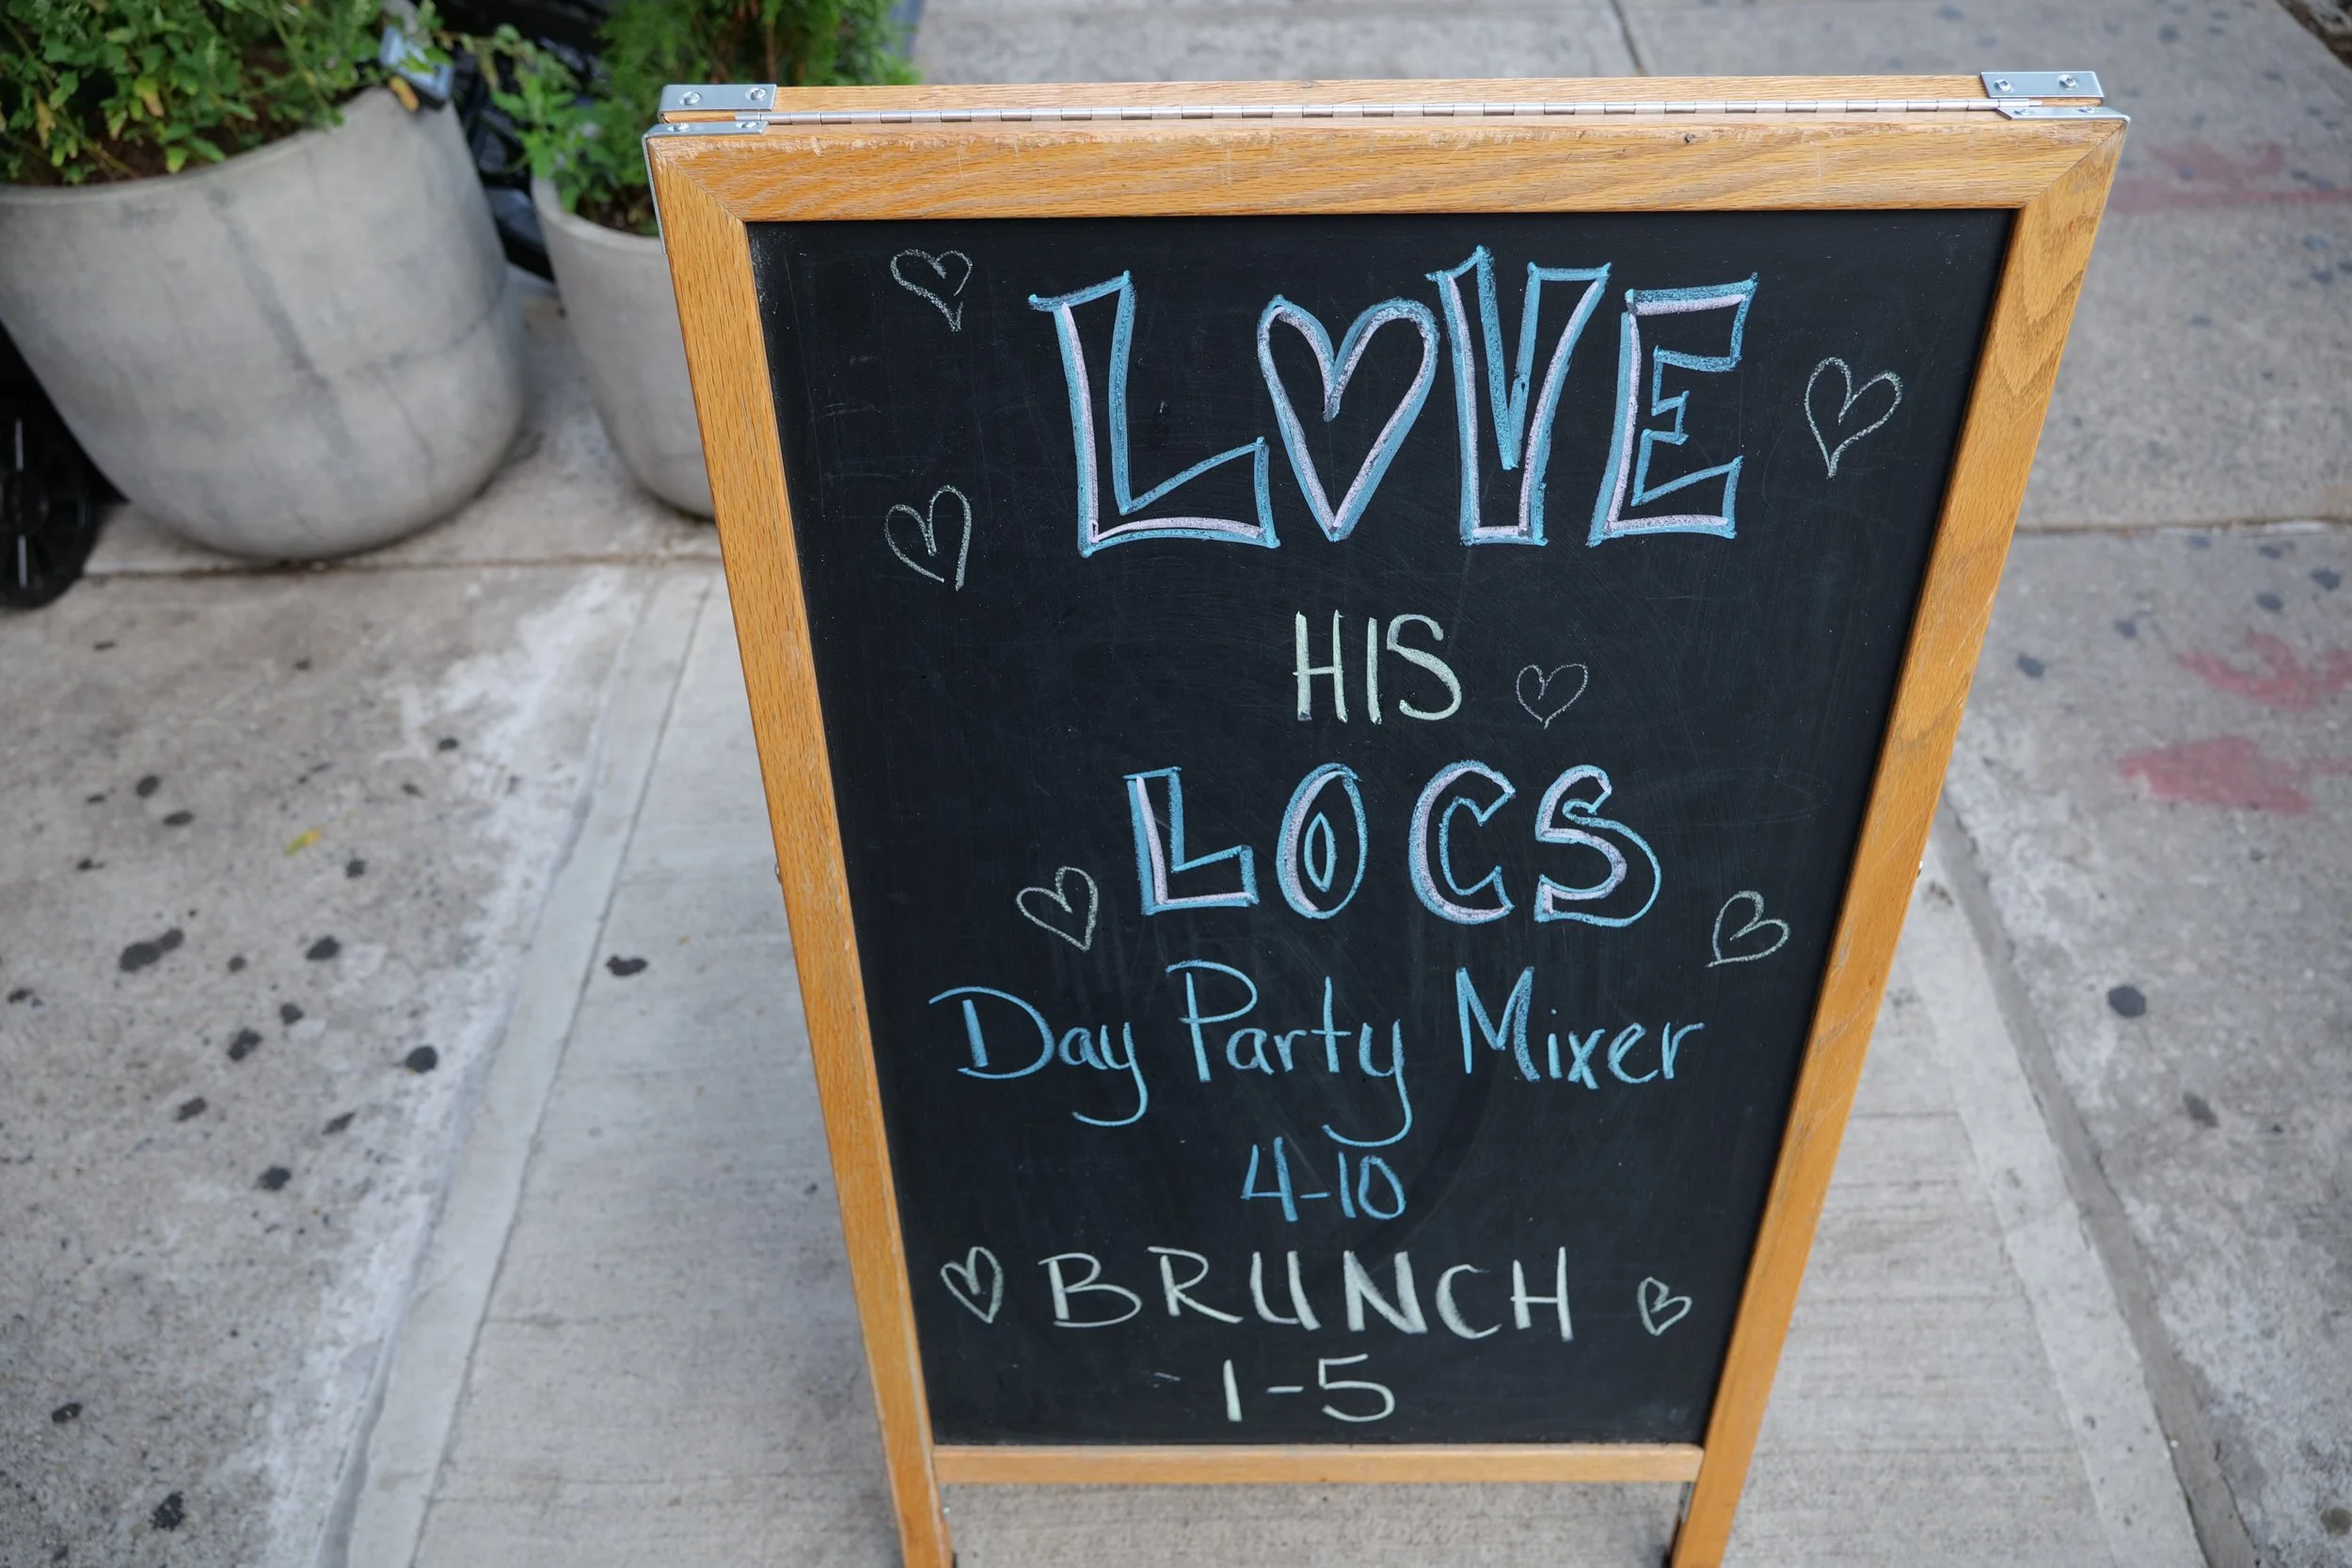 LOVE
HIS
LOCS
Day Party Mixer
4-10
BRUNCH
1-5